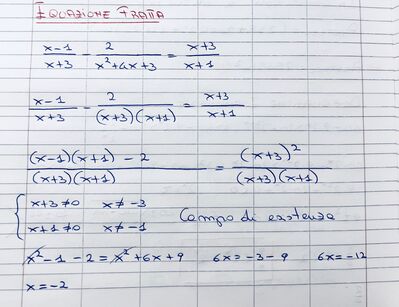 EQUAZIONE FRATTA
x-1/x+3 - 2/x²+4x+3 = x+3/x+1
x-1/x+3 - 2/(x+3)(x+1) = x+3/x+1
(x-1)(x+1) - 2/(x+3)(x+1) = (x+3)²/(x+3)(x+1)
{ x+3≠0 x≠-3
x+1≠0 x≠-1 Campo di esistenza
x²-1-2=x²+6x+9 6x=-3-9 6x=-12
x=-2